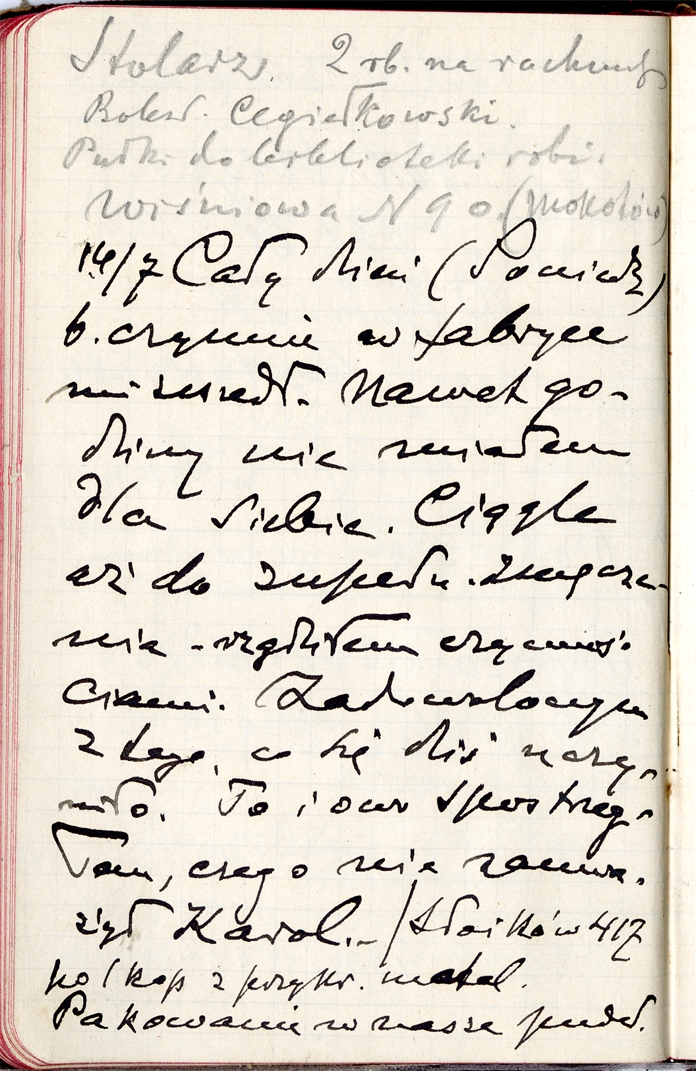 Stolarz. 2 rb. na rachunek
Bolesł. Cegiełkowski.
Pudła do biblioteki robi.
Wiśniowa N 9 o. (Mokotów)
14/7 Cały dzień (Poniedz)
b. czynnie w fabryce
mi zeszedł. Nawet go-
dziny nie miałem
dla siebie. Ciągle
aż do zmęcze-
nia czynnoś-
ciami. Zadowolonym
z tego, co się dziś uczy-
niło. To i owo spostrzeg-
łem, czego nie zauwa-
żył Karol. - / Słoików 417
po 1 kop z przykr. metal.
Pakowanie w nasze pudeł.